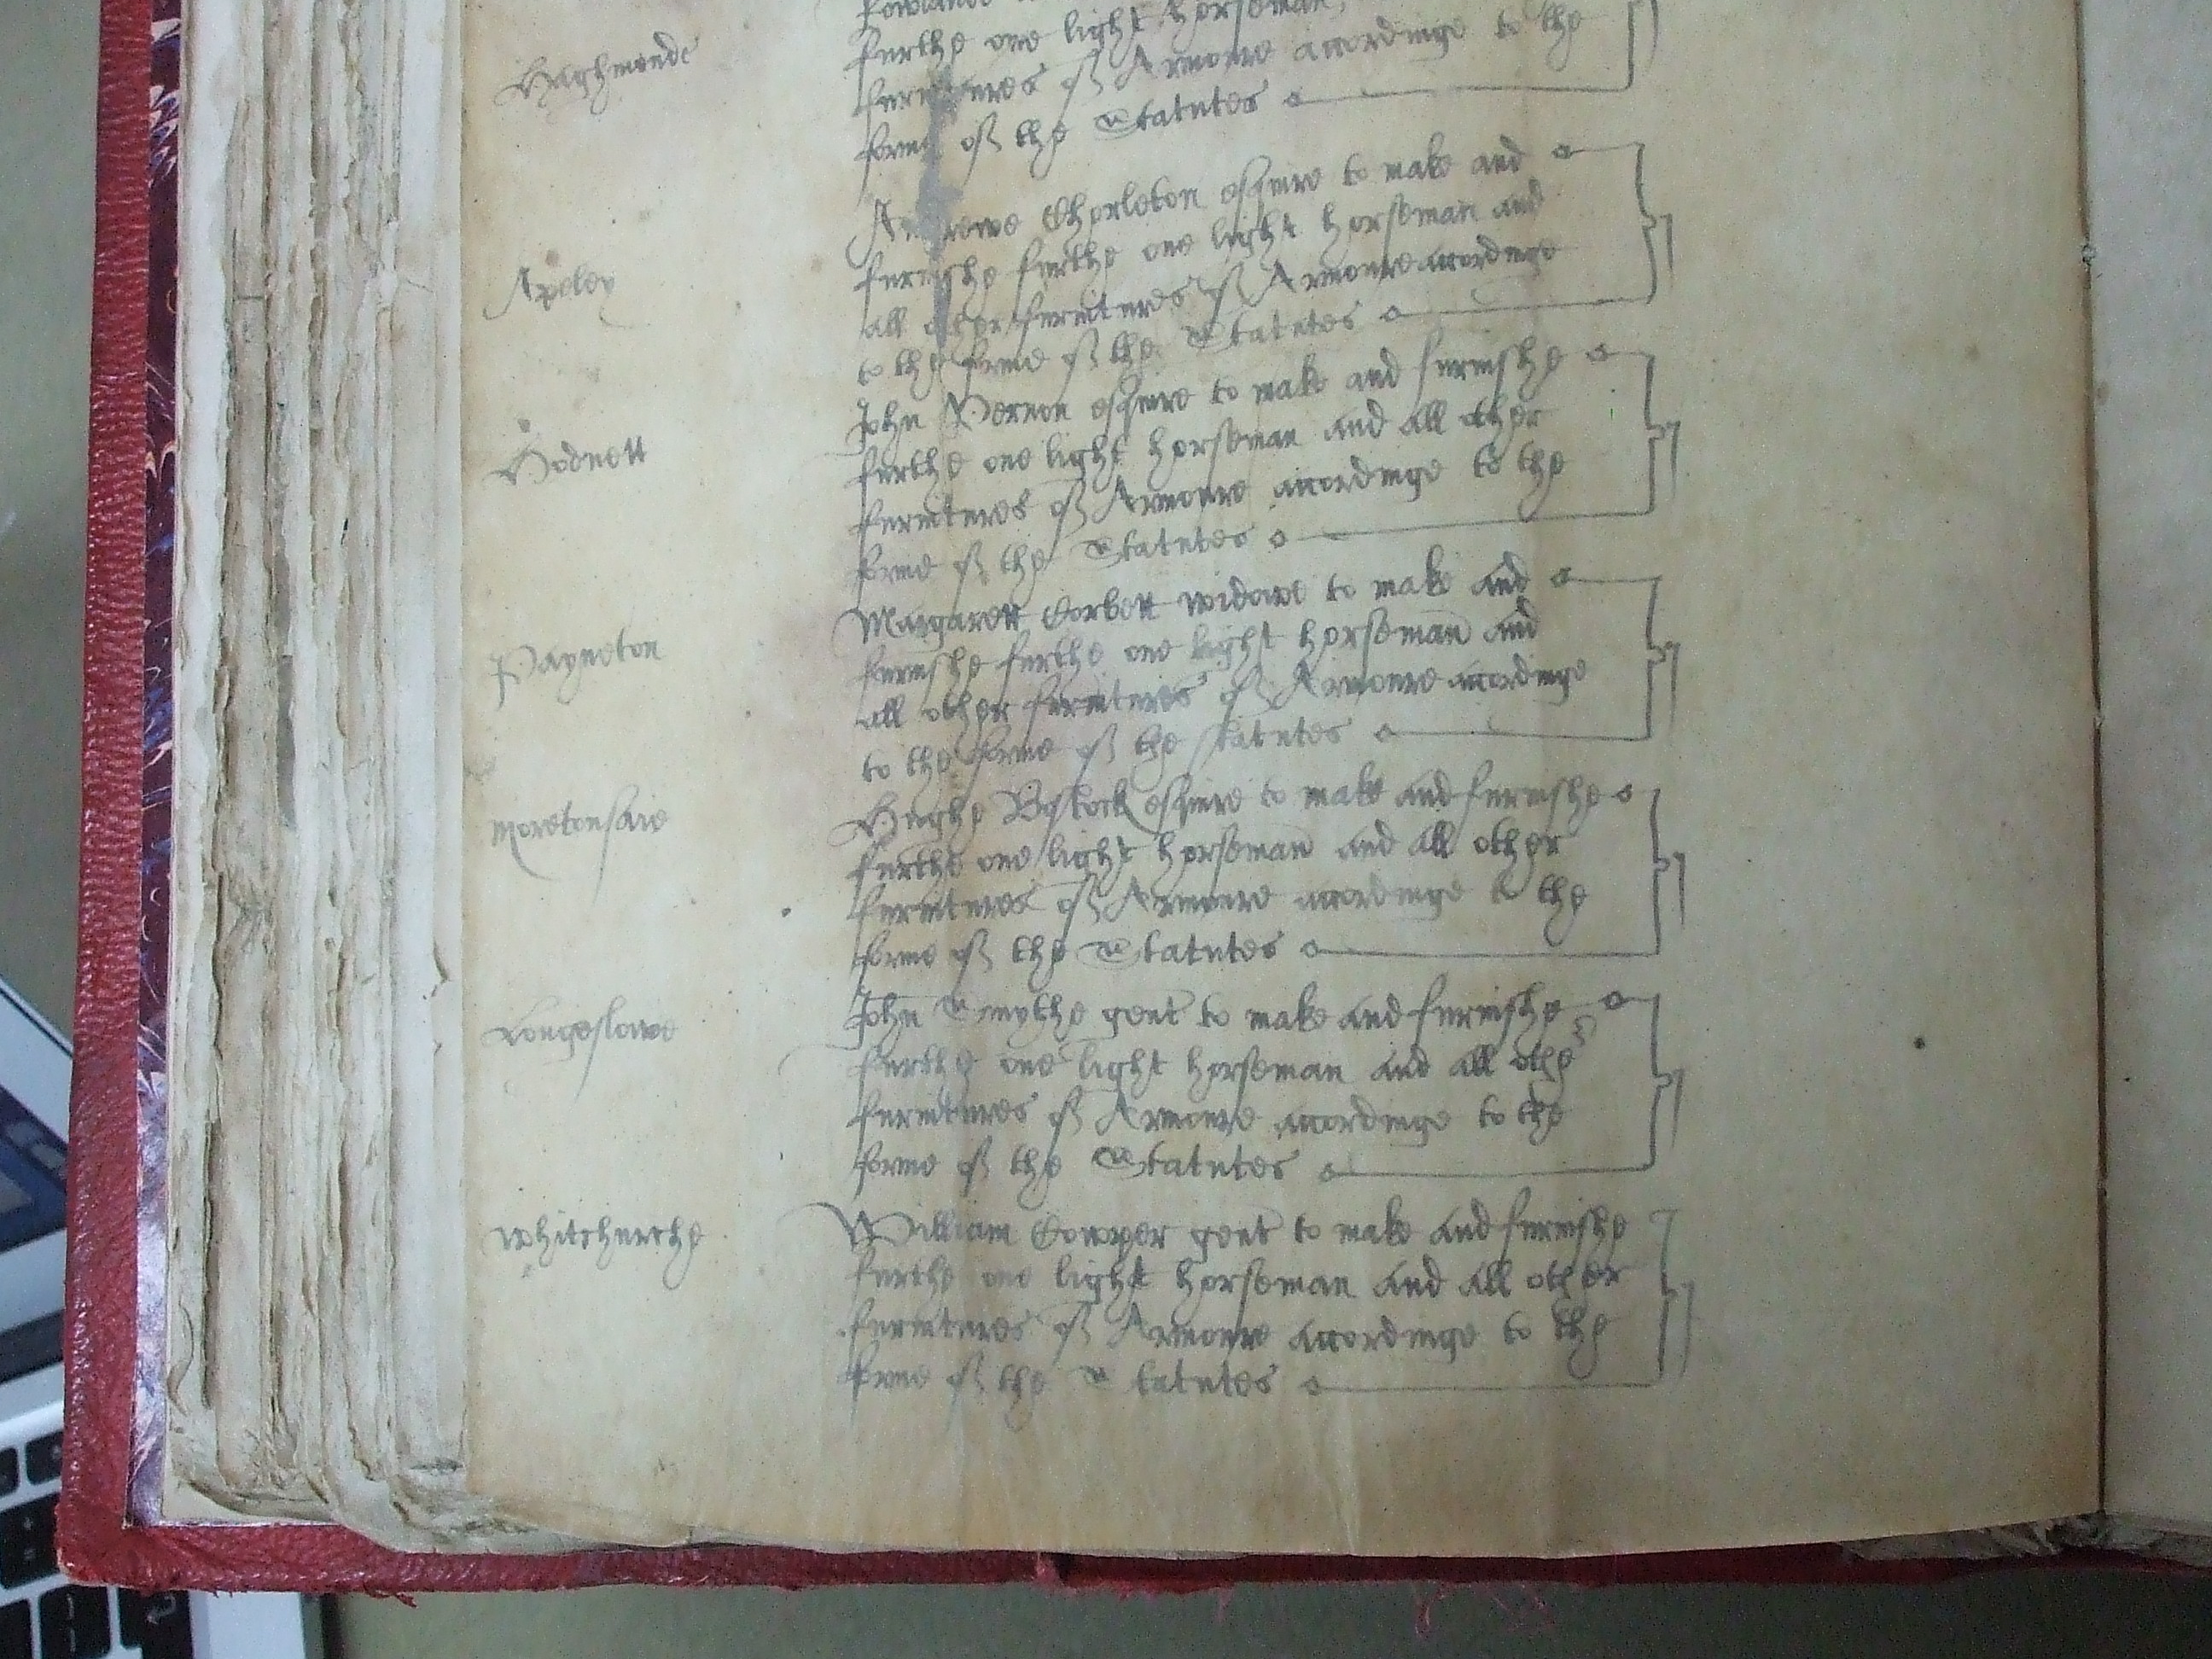 Haghmonde
furthe one light horseman
furnitures of Armoure accordinge to the
forme of the Statutes
Apeley
Andrewe Charleton esquire to make and
furnishe furthe one light horseman and
all other furnitures of Armoure accordinge
to the forme of the Statutes
Hodnett
John Vernon esquire to make and furnishe
furthe one light horseman and all other
furnitures of Armoure accordinge to the
forme of the Statutes
Payneton
Margarett Corbett widowe to make and
furnishe furthe one light horseman and
all other furnitures of Armoure accordinge
to the forme of the Statutes
Moretonsaie
Hughe Bostock esquire to make and furnishe
furthe one light horseman and all other
furnitures of Armoure accordinge to the
forme of the Statutes
Longeslowe
John Smythe gent to make and furnishe
furthe one light horseman and all other
furnitures of Armoure accordinge to the
forme of the Statutes
Whitchurche
William Cowper gent to make and furnishe
furthe one light horseman and all other
furnitures of Armoure accordinge to the
forme of the Statutes